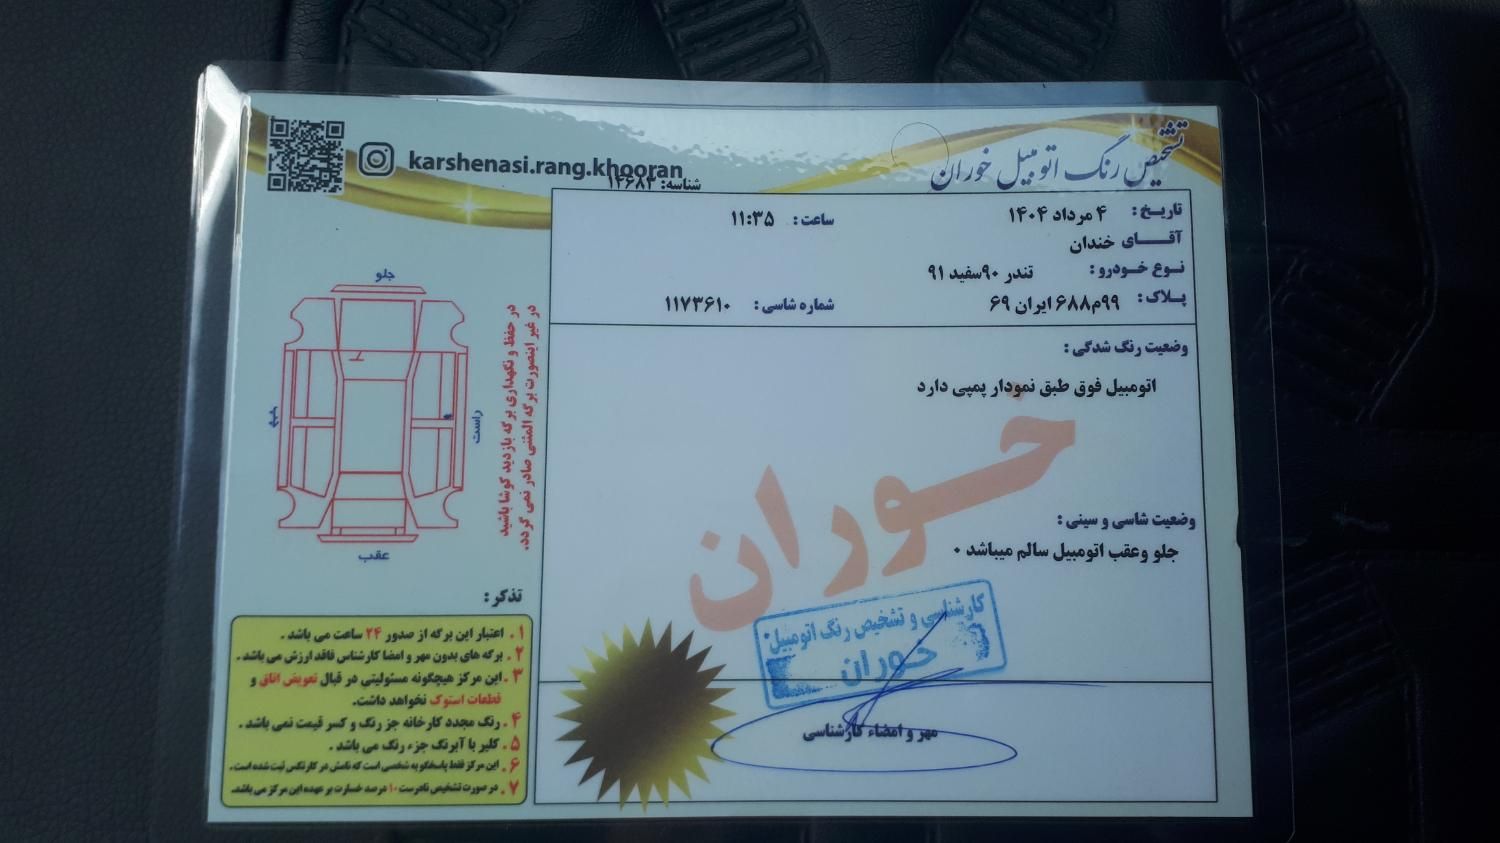 تشخیص رنگ اتومبیل خوران
karshenasi.rang.khooran
شناسه: ۱۴۶۸۳
تاریخ: ۴ مرداد ۱۴۰۴ ساعت: ۱۱:۳۵
آقای خندان
نوع خودرو: تندر ۹۰سفید ۹۱
پلاک: ۹۹م۶۸۸ ایران ۶۹ شماره شاسی: ۱۱۷۳۶۱۰
وضعیت رنگ شدگی:
اتومبیل فوق طبق نمودار پمپی دارد
خوران
وضعیت شاسی و سینی:
جلو وعقب اتومبیل سالم میباشد ۰
کارشناسی و تشخیص رنگ اتومبیل
خوران
مهر و امضاء کارشناسی
جلو
راست
چپ
عقب
در حفظ و نگهداری برگه بازدید کوشا باشید
در غیر اینصورت برگه المثنی صادر نمی گردد.
تذکر:
۱. اعتبار این برگه از صدور ۲۴ ساعت می باشد.
۲. برگه های بدون مهر و امضا کارشناس فاقد ارزش می باشد.
۳. این مرکز هیچگونه مسئولیتی در قبال تعویض اتاق و
قطعات استوک نخواهد داشت.
۴. رنگ مجدد کارخانه جز رنگ و کسر قیمت نمی باشد.
۵. کلیر با آبرنگ جزء رنگ می باشد.
۶. این مرکز فقط پاسخگو به شخصی است که نامش در کارتکس ثبت شده است.
۷. در صورت تشخیص نادرست ۱۰ درصد خسارت بر عهده این مرکز می باشد.